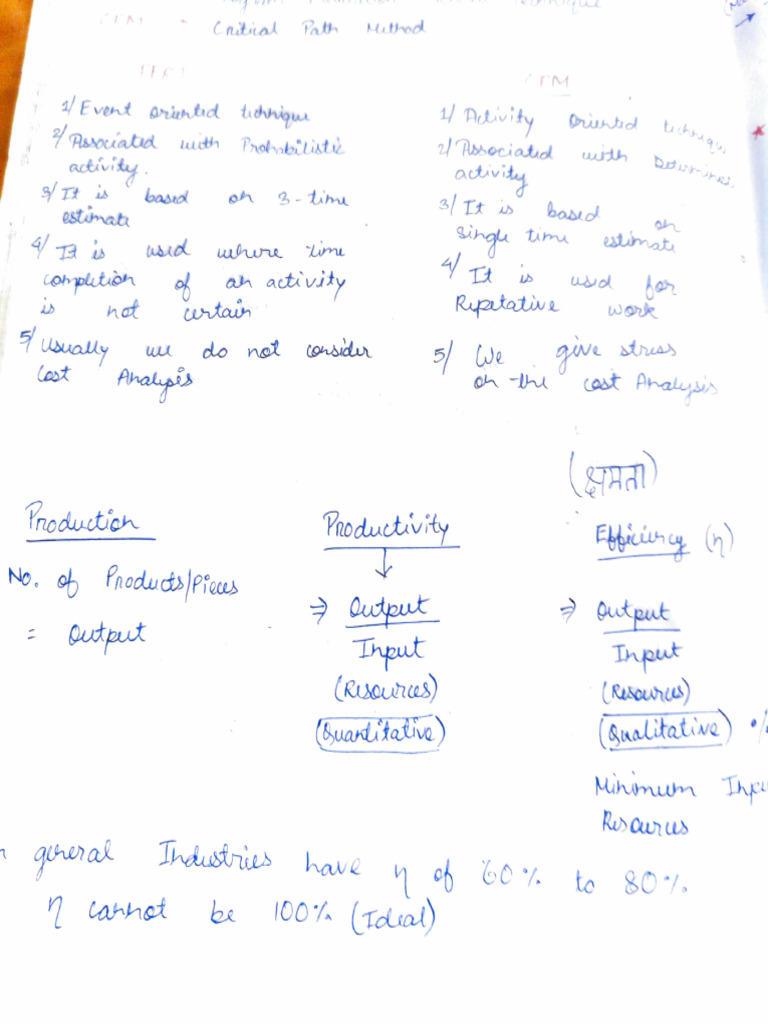 Technique
CPM - Critical Path Method
PERT
CPM
1/ Event oriented technique
2/ Associated with Probabilistic
activity.
3/ It is based on 3-time
estimate
4/ It is used where time
completion of an activity
is not certain
5/ Usually we do not consider
Cost Analysis
1/ Activity oriented technique
2/ Associated with
activity
3/ It is based on
single time estimate
4/ It is used for
Repetative work
5/ We give stress
on the cost Analysis
Production
No. of Products/Pieces
= Output
Productivity
⇒ Output
Input
(Resources)
(Quantitative)
(क्षमता)
Efficiency (η)
⇒ Output
Input
(Resources)
(Qualitative) %
Minimum Inpu
Resources
n general Industries have η of 60% to 80%.
η cannot be 100% (Ideal)